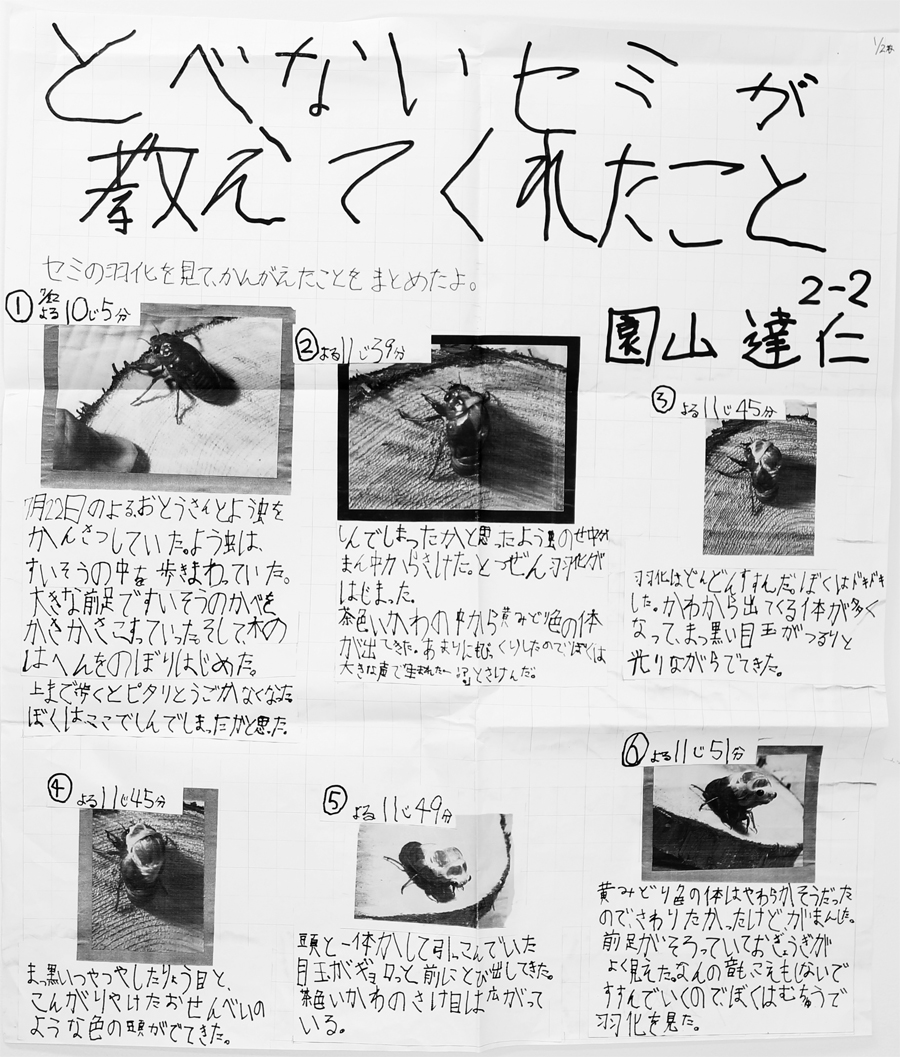 1/2枚
とべないセミが
教えてくれたこと
セミの羽化を見て、かんがえたことをまとめたよ。
2-2
園山達仁
① 7/22 よる10じ5分
7月22日のよる、おとうさんとよう虫を
かんさつしていた。よう虫は、
すいそうの中を歩きまわっていた。
大きな前足ですいそうのかべを
かさかさこすっていった。そして木の
はへんをのぼりはじめた。
上まで歩くとピタリとうごかなくなった。
ぼくはここでしんでしまったかと思った。
② よる11じ39分
しんでしまったかと思ったよう虫のせ中が
まん中からさけた。とつぜん羽化が
はじまった。
茶色いかわの中から黄みどり色の体
が出てきた。あまりにもびっくりしたのでぼくは
大きな声で「生まれたー!!」とさけんだ。
③ よる11じ45分
羽化はどんどんすすんだ。ぼくはドキドキ
した。かわから出てくる体が多く
なって、まっ黒い目玉がつるりと
光りながらでてきた。
④ よる11じ45分
まっ黒いつやつやしたりょう目と、
こんがりやけたおせんべいの
ような色の頭がでてきた。
⑤ よる11じ49分
頭と一体かして引っこんでいた
目玉がギョロっと前にとび出してきた。
茶色いかわのさけ目は広がって
いる。
⑥ よる11じ51分
黄みどり色の体はやわらかそうだった
ので、さわりたかったけど、がまんした。
前足がそろっていておぎょうぎが
よく見えた。なんの音も、こえもしないで
すすんでいくのでぼくはむちゅうで
羽化を見た。